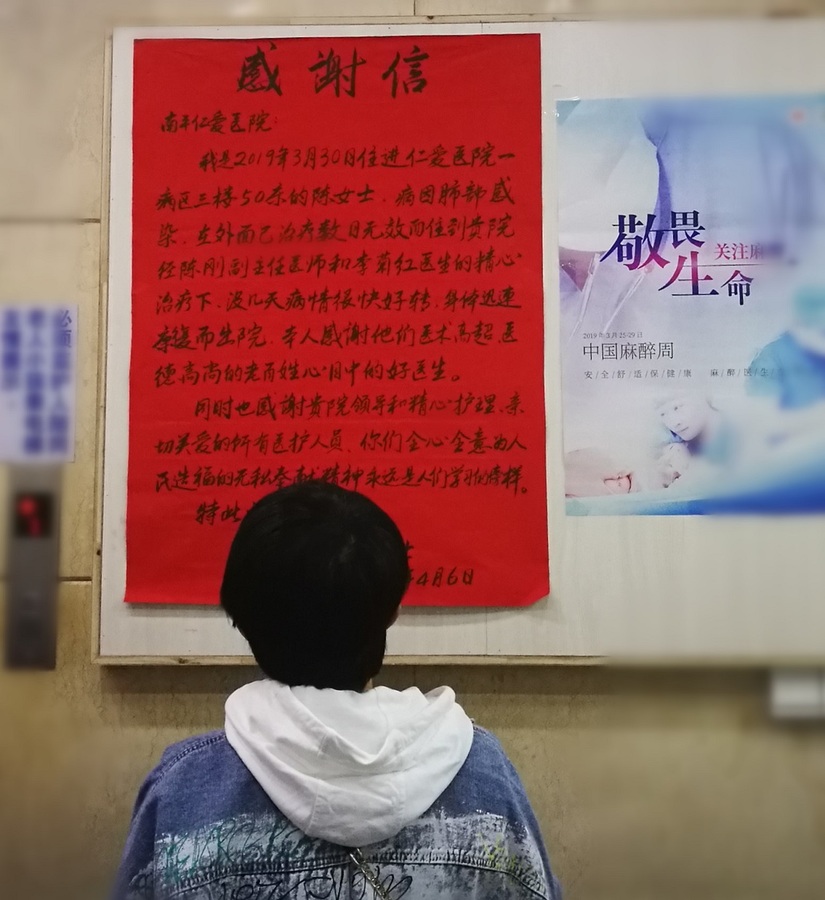 感謝信
南平仁爱医院:
我是2019年3月30日住进仁爱医院一
病区三楼50床的陈女士，病因肺部感
染，在外面已治疗数日无效而住到贵院
经陈刚副主任医师和李菊红医生的精心
治疗下，没几天病情很快好转，身体迅速
康復而出院，本人感謝他们医术高超医
德高尚的老百姓心目中的好医生。
同时也感謝贵院领导和精心护理、亲
切关爱的所有医护人员，你们全心全意为人
民造福的无私奉献精神永远是人们学习的榜样。
特此
4月6日
敬畏
生命
关注麻
2019年3月25-29日
中国麻醉周
安/全/舒/适/保/健/康 麻/醉/医/生/
必须